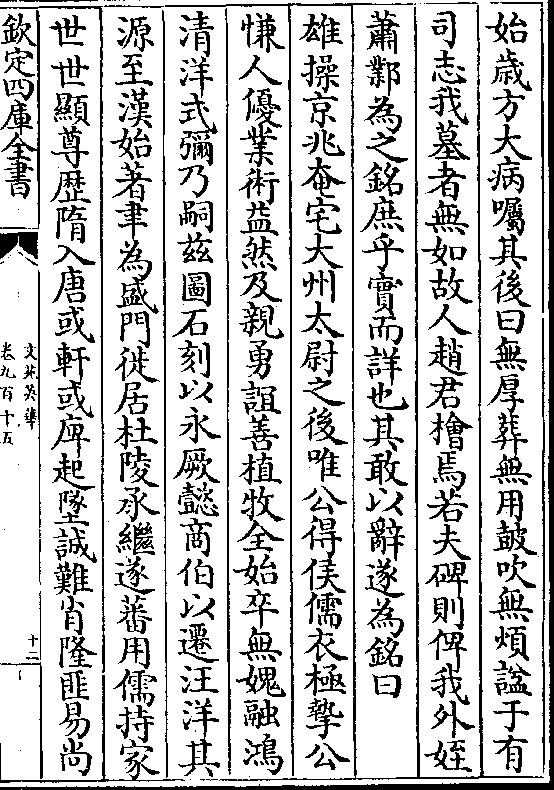 始歳方大病囑其後曰無厚葬無用鼓吹無煩諡于有
司志我墓者無如故人趙君櫓焉若夫碑則俾我外姪
蕭鄴為之銘庶乎實而詳也其敢以辭遂為銘曰
雄操京兆奄宅大州太尉之後唯公得侯儒衣極摯公
慊人優業術益然及親勇誼善植牧全始卒無媿融鴻
清洋式彌乃嗣兹圖石刻以永厥懿商伯以遷汪洋其
源至漢始著聿為盛門徙居杜陵承繼遂蕃用儒持家
世世顯尊歴隋入唐或軒或庳起墜誠難肖隆匪易尚
欽定四庫全書
文苑英華
卷九百十五
十二